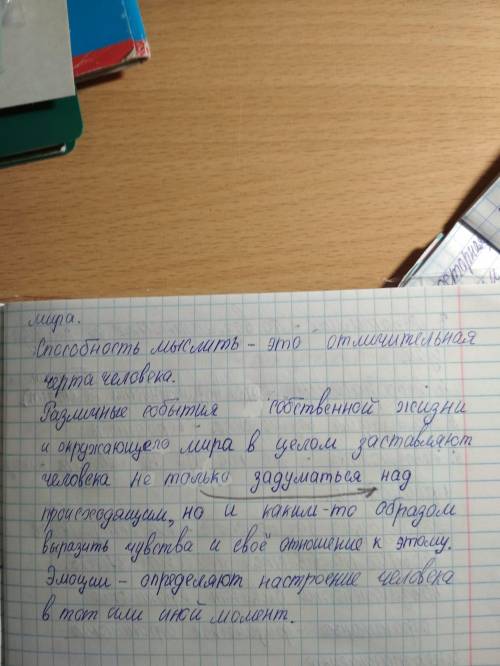 мира.
Способность мыслить - это отличительная
черта человека.
Различные события собственной жизни
и окружающего мира в целом заставляют
человека не только задуматься над
происходящим, но и каким-то образом
выразить чувства и своё отношение к этому.
Эмоции - определяют настроение человека
в тот или иной момент.